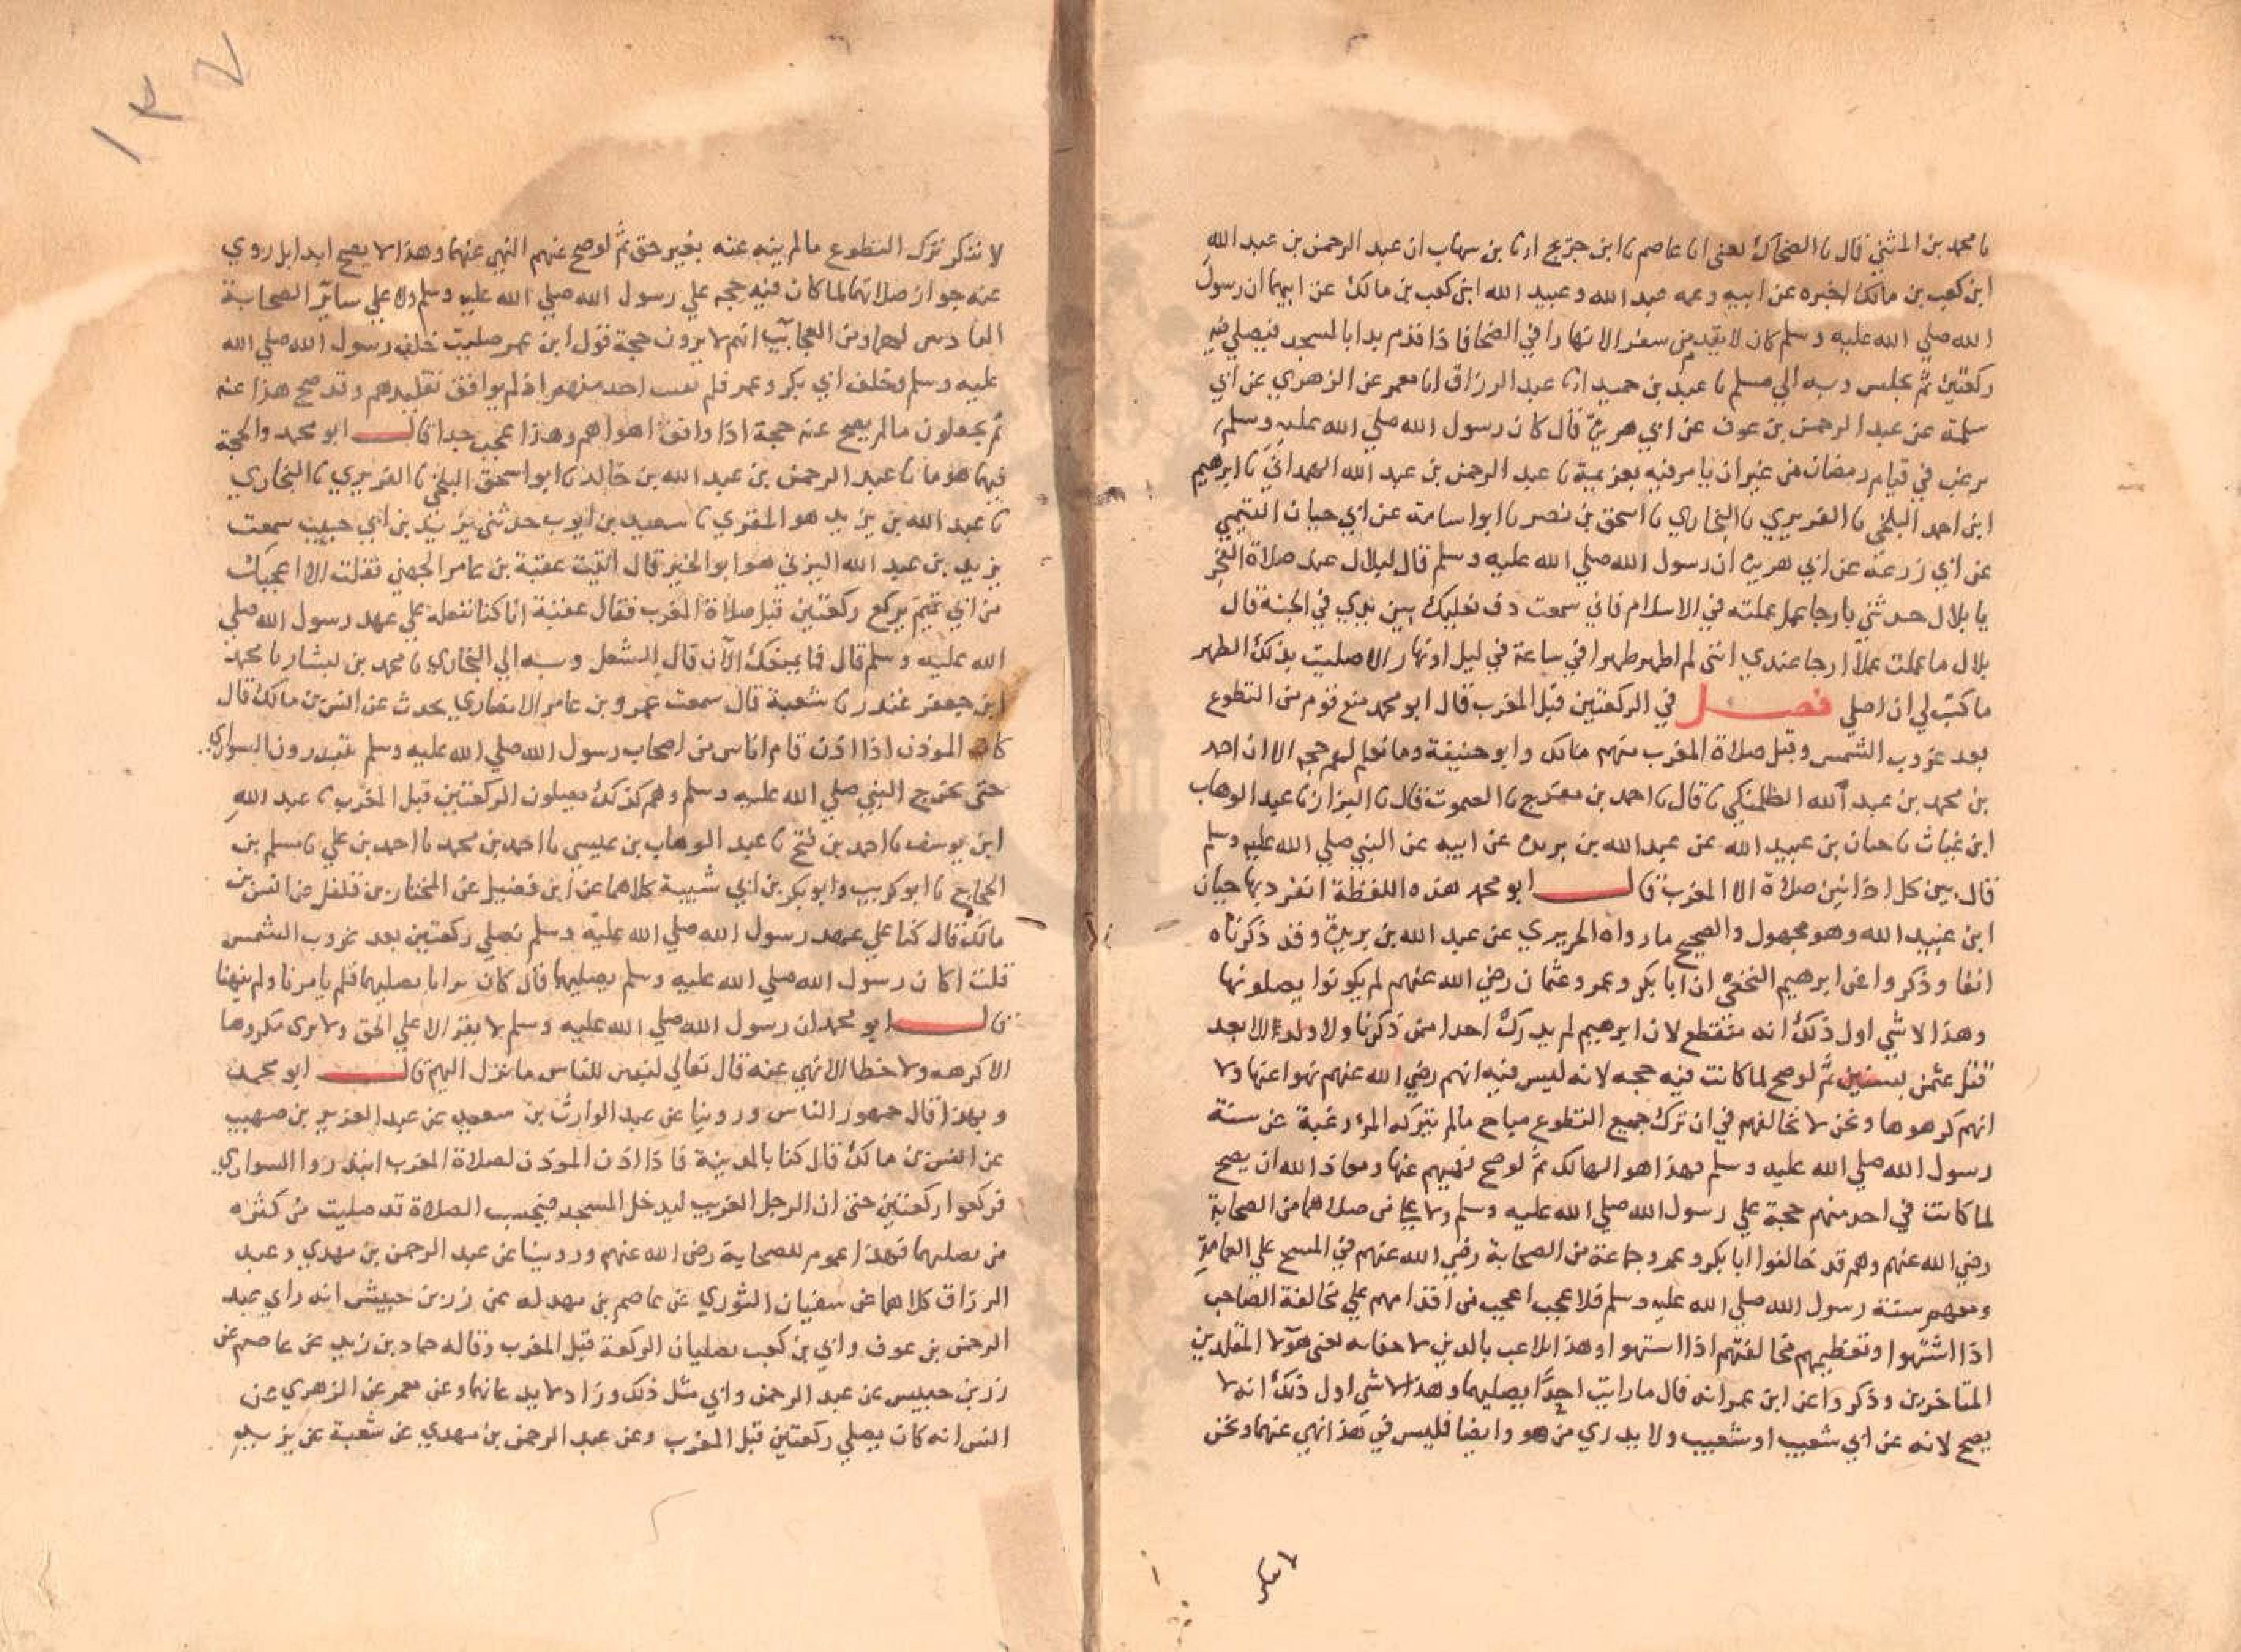 نا محمد بن المثني قال نا الضحاك يعني ابا عاصم نا ابن جريج ارنا بن شهاب ان عبد الرحمن بن عبد الله
ابن كعب بن مالك اخبره عن ابيه وعمه عبد الله وعبيد الله ابني كعب بن مالك عن ابيهما ان رسول
الله صلي الله عليه وسلم كان لا يقدم من سفر الا نهارا في الضحا فاذا قدم بدا بالمسجد فيصلي فيه
ركعتين ثم يجلس وبه الي مسلم نا عبد بن حميد ارنا عبد الرزاق انا معمر عن الزهري عن ابي
سلمة عن عبد الرحمن بن عوف عن ابي هريرة قال كان رسول الله صلي الله عليه وسلم
يرغب في قيام رمضان من غير ان يامر فيه بعزيمة نا عبد الرحمن بن عبد الله الهمداني نا ابرهيم
ابن احمد البلخي نا الفربري نا البخاري نا اسحق بن نصر نا ابو اسامة عن ابي حيان التيمي
عن ابي زرعة عن ابي هريرة ان رسول الله صلي الله عليه وسلم قال لبلال عند صلاة الفجر
يا بلال حدثني بارجا عمل عملته في الاسلام فاني سمعت دف نعليك بين يدي في الجنة قال
بلال ما عملت عملا ارجا عندي انني لم اطهر طهورا في ساعة في ليل او نهار الا صليت بذلك الطهر
ما كتب لي ان اصلي فصل في الركعتين قبل المغرب قال ابو محمد منع قوم من التطوع
بعد غروب الشمس وقبل صلاة المغرب منهم مالك وابو حنيفة وما نعلم لهم حجه الا ان احمد
بن محمد بن عبد الله الطلمنكي نا قال نا احمد بن مفرج نا الصموت قال نا البزار نا عبد الوهاب
ابن غياث نا حيان بن عبيد الله عن عبد الله بن بريدة عن ابيه عن النبي صلي الله عليه وسلم
قال بين كل اذانين صلاة الا المغرب قال ابو محمد هذه اللفظة انفرد بها حيان
ابن عبيد الله وهو مجهول والصحيح ما رواه الجريري عن عبد الله بن بريدة وقد ذكرناه
انفا وذكروا عن ابرهيم النخعي ان ابا بكر وعمر وعثمان رضي الله عنهم لم يكونوا يصلونها
وهذا لا شي اول ذلك انه منقطع لان ابرهيم لم يدرك احدا ممن ذكرنا ولا ولد الا بعد
قتل عثمن بسنين ثم لو صح لما كانت فيه حجه لانه ليس فيه انهم رضي الله عنهم نهوا عنها ولا
انهم كرهوها ونحن لا نخالفهم في ان ترك جميع التطوع مباح ما لم يتركه المرء رغبة عن سنة
رسول الله صلي الله عليه وسلم فهذا هو الهالك ثم لو صح نهيهم عنها ومعاذ الله ان يصح
لما كانت في احد منهم حجة علي رسول الله صلي الله عليه وسلم ولا علي من صلاهما من الصحابة
رضي الله عنهم وهم قد خالفوا ابا بكر وعمر وجماعة من الصحابة رضي الله عنهم في المسح علي العمامة
ومعهم سنة رسول الله صلي الله عليه وسلم فلا عجب اعجب من اقدامهم علي مخالفة الصاحب
اذا اشتهوا وتعظيمهم مخالفتهم اذا اشتهوا وهذا تلاعب بالدين لا خفا به لعني هولا المقلدين
المتاخرين وذكروا عن ابن عمر انه قال ما رايت احدا يصليهما وهذا لا شي اول ذلك انه لا
يصح لانه عن ابي شعيب او شعيب ولا يدري من هو وايضا فليس في هذا نهي عنهما ونحن
لا ننكر
لا ننكر ترك التطوع ما لم ينه عنه بغير حق ثم لو صح عنهم النهي عنهما وهذا لا يصح ابدا بل روي
عنه جواز صلاتهما لما كان فيه حجه علي رسول الله صلي الله عليه وسلم ولا علي ساير الصحابة
القادس لهما ومن العجايب انهم لا يرون حجة قول ابن عمر صليت خلف رسول الله صلي الله
عليه وسلم وخلف ابي بكر وعمر فلم يقنت احد منهم اذ لم يوافق تقليدهم وقد صح هذا عنه
ثم يجعلون ما لم يصح عنه حجة اذا وافق اهواهم وهذا عجب جدا قال ابو محمد والحجة
فيها هو ما نا عبد الرحمن بن عبد الله بن خالد نا ابو اسحق البلخي نا الفربري نا البخاري
نا عبد الله بن يزيد هو المقري نا سعيد بن ايوب حدثني يزيد بن ابي حبيب سمعت
يزيد بن عبد الله اليزني هو ابو الخير قال اتيت عقبة بن عامر الجهني فقلت الا اعجبك
من ابي تميم يركع ركعتين قبل صلاة المغرب فقال عقبة انا كنا نفعله علي عهد رسول الله صلي
الله عليه وسلم قال فما يمنعك الآن قال الشغل وبه الي البخاري نا محمد بن بشار نا محمد
ابن جعفر غندر نا شعبة قال سمعت عمرو بن عامر الانصاري يحدث عن انس بن مالك قال
كان الموذن اذا اذن قام اناس من اصحاب رسول الله صلي الله عليه وسلم يبتدرون السواري
حتى يخرج النبي صلي الله عليه وسلم وهم كذلك يصلون الركعتين قبل المغرب نا عبد الله
ابن يوسف نا احمد بن فتح نا عبد الوهاب بن عيسي نا احمد بن محمد نا احمد بن علي نا مسلم بن
الحجاج نا ابو كريب وابو بكر بن ابي شيبة كلاهما عن ابن فضيل عن المختار بن فلفل عن انس بن
مالك قال كنا علي عهد رسول الله صلي الله عليه وسلم نصلي ركعتين بعد غروب الشمس
قلت اكان رسول الله صلي الله عليه وسلم يصليهما قال كان يرانا نصليهما فلم يامرنا ولم ينهنا
قال ابو محمد ان رسول الله صلي الله عليه وسلم لا يقر الا علي الحق ولا يرى مكروها
الا كرهه ولا خطا الا نهي عنه قال تعالي لتبين للناس ما نزل اليهم قال ابو محمد
وبهذا قال جمهور الناس وروينا عن عبد الوارث بن سعيد عن عبد العزيز بن صهيب
عن انس بن مالك قال كنا بالمدينة فاذا اذن الموذن لصلاة المغرب ابتدروا السواري
فركعوا ركعتين حتى ان الرجل الغريب ليدخل المسجد فيحسب الصلاة قد صليت من كثره
من يصليهما فهذا عموم للصحابة رضي الله عنهم وروينا عن عبد الرحمن بن مهدي وعبد
الرزاق كلاهما عن سفيان الثوري عن عاصم بن بهدله عن زر بن حبيش انه راي عبد
الرحمن بن عوف وابي بن كعب يصليان الركعة قبل المغرب وقاله حماد بن زيد عن عاصم عن
زر بن حبيس عن عبد الرحمن وابي مثل ذلك وزاد لا يدعانهما وعن معمر عن الزهري عن
انس انه كان يصلي ركعتين قبل المغرب وعن عبد الرحمن بن مهدي عن شعبة عن يزيد
١٣٧